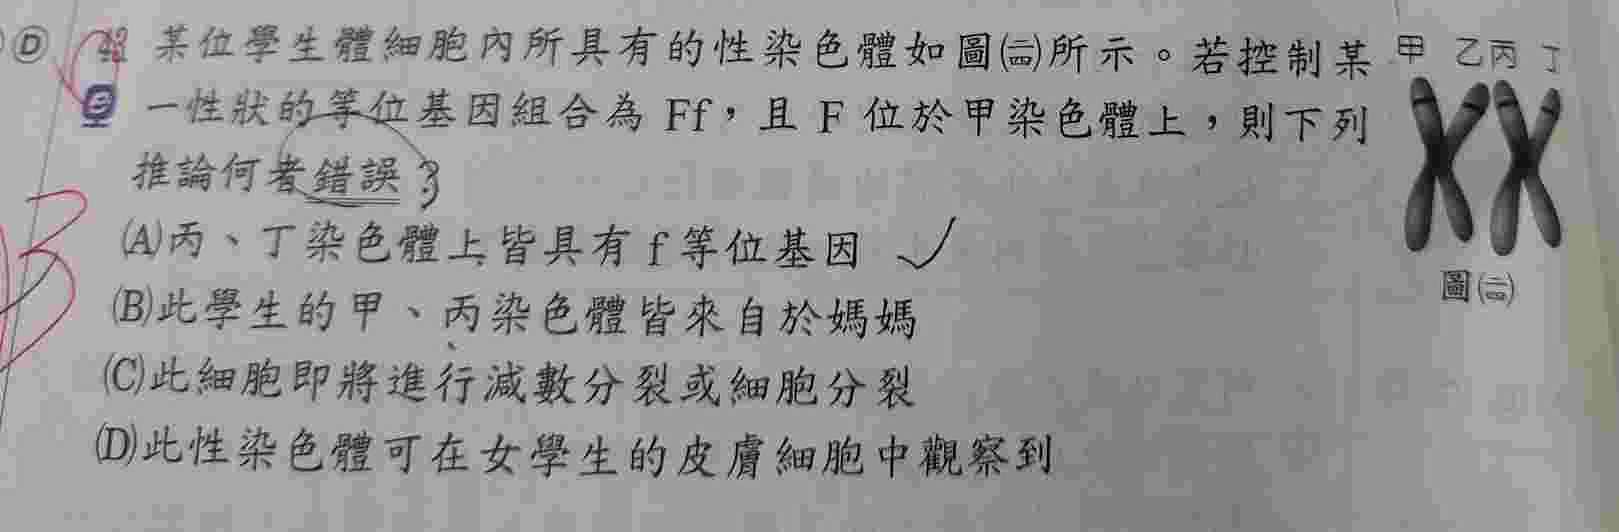 D 42 某位學生體細胞內所具有的性染色體如圖㈣所示。若控制某
一性狀的等位基因組合為 Ff，且 F 位於甲染色體上，則下列
推論何者錯誤？
(A)丙、丁染色體上皆具有 f 等位基因
(B)此學生的甲、丙染色體皆來自於媽媽
(C)此細胞即將進行減數分裂或細胞分裂
(D)此性染色體可在女學生的皮膚細胞中觀察到
甲 乙 丙 丁
B